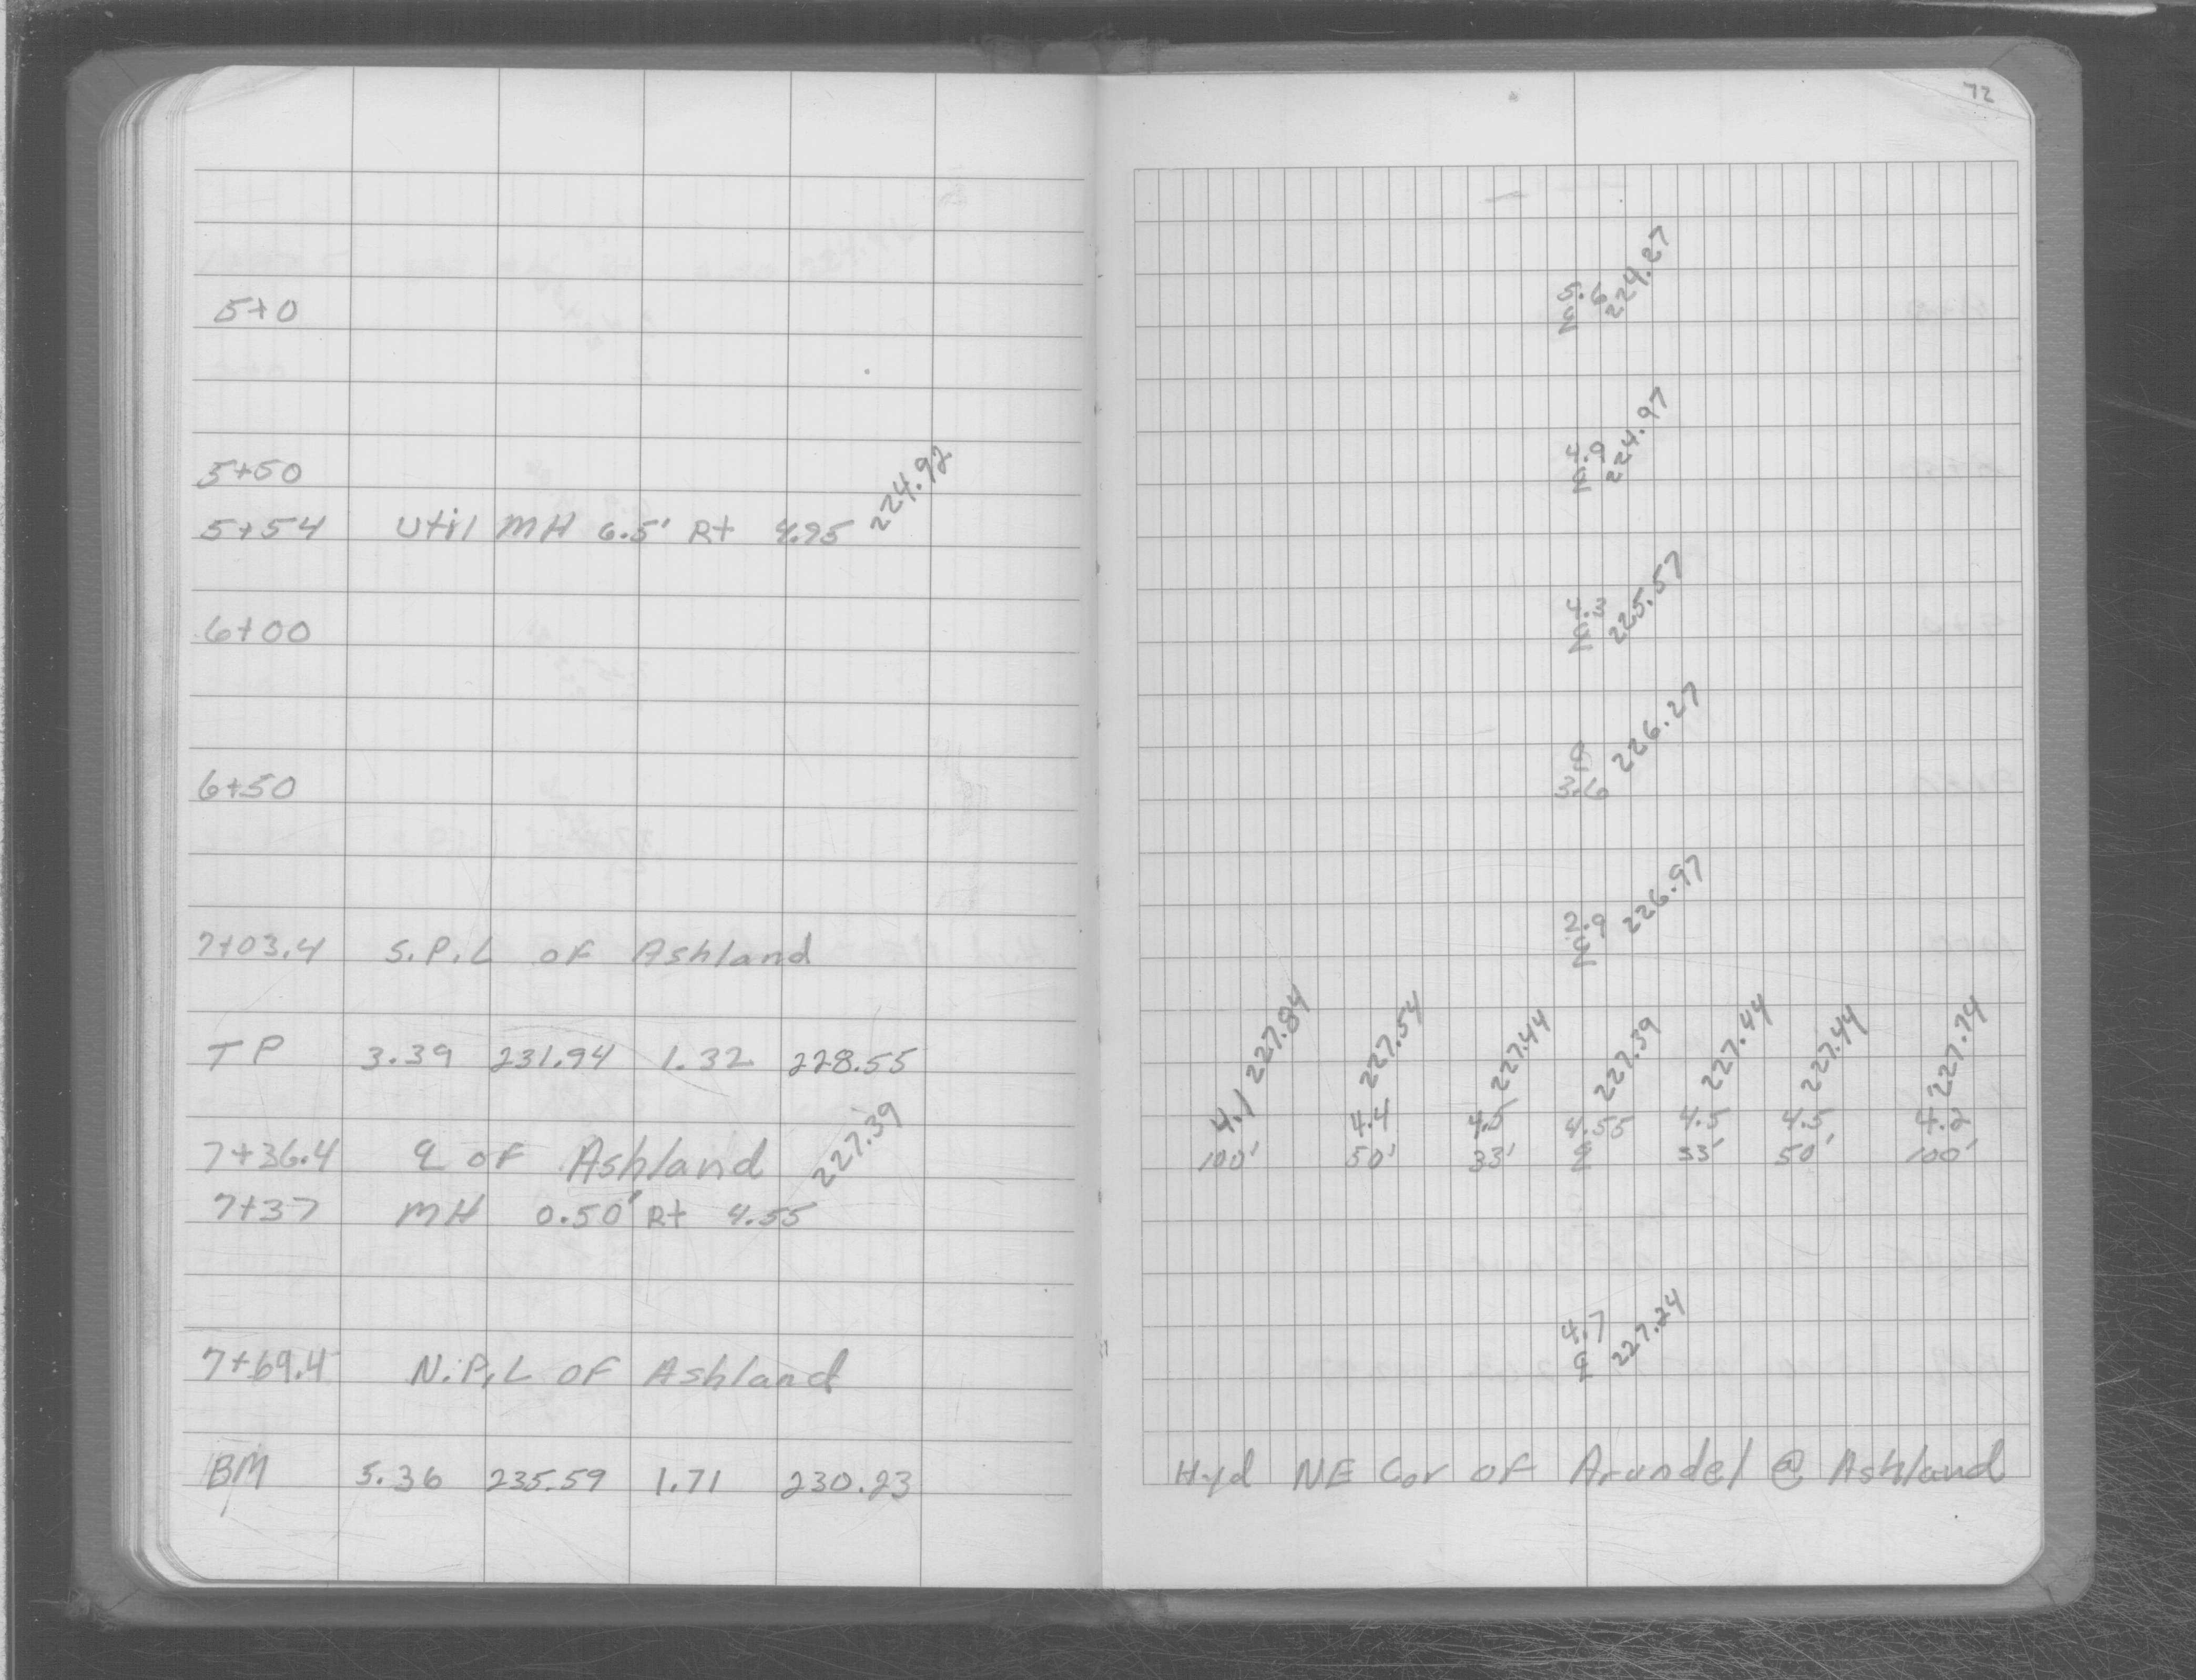 72
5+0
5.6 224.27
℄
5+50
4.9 224.97
℄
5+54 Util MH 6.5' Rt 4.95 224.92
6+00
4.3 225.57
℄
6+50
℄ 226.27
3.6
7+03.4 S.P.L of Ashland
2.9 226.97
℄
TP 3.39 231.94 1.32 228.55
227.84 227.54 227.44 227.39 227.44 227.44 227.74
4.1 4.4 4.5 4.55 4.5 4.5 4.2
100' 50' 33' ℄ 33' 50' 100'
7+36.4 ℄ of Ashland 227.39
7+37 MH 0.50' Rt 4.55
7+69.4 N.P.L of Ashland
4.7 227.24
℄
BM 5.36 235.59 1.71 230.23
Hyd NE Cor of Arundel @ Ashland